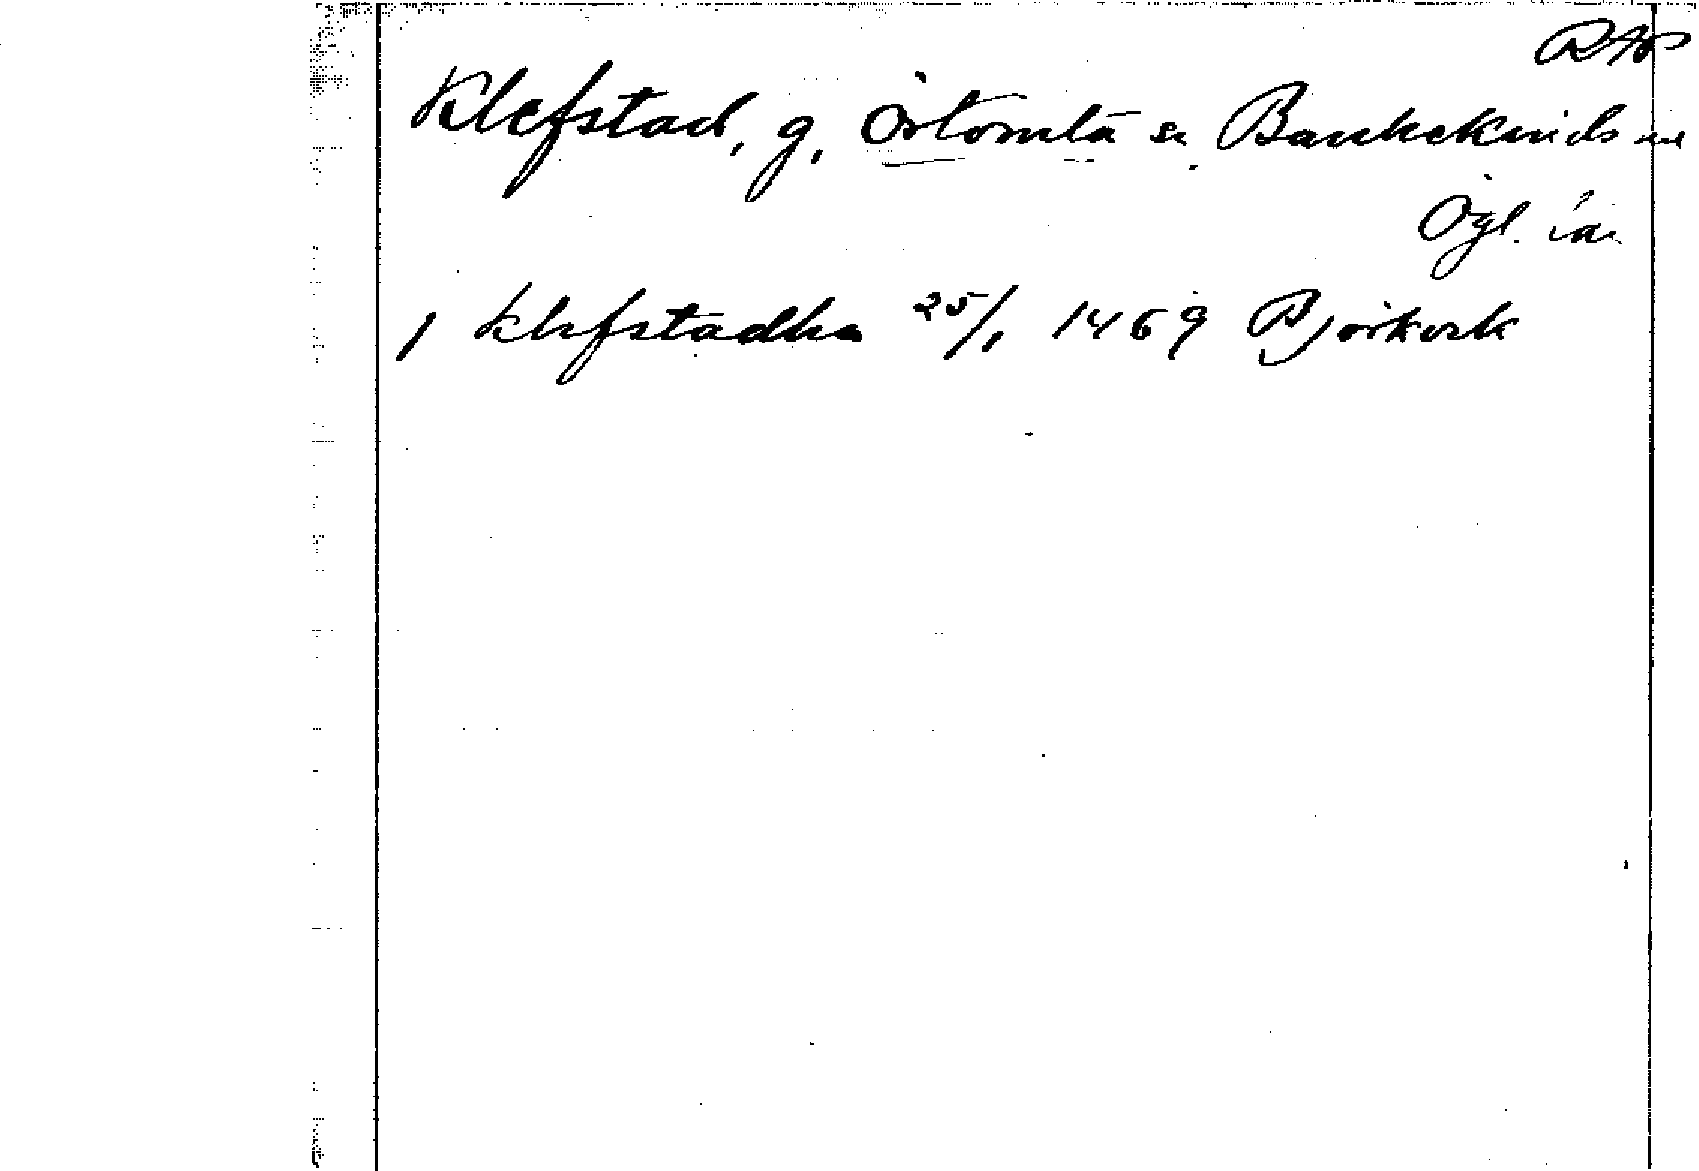 RAP
Klefstad, g, Örtomta sn Bankekinds hd
Ögl. län
1 klefstadha 25/1 1469 Björkvik